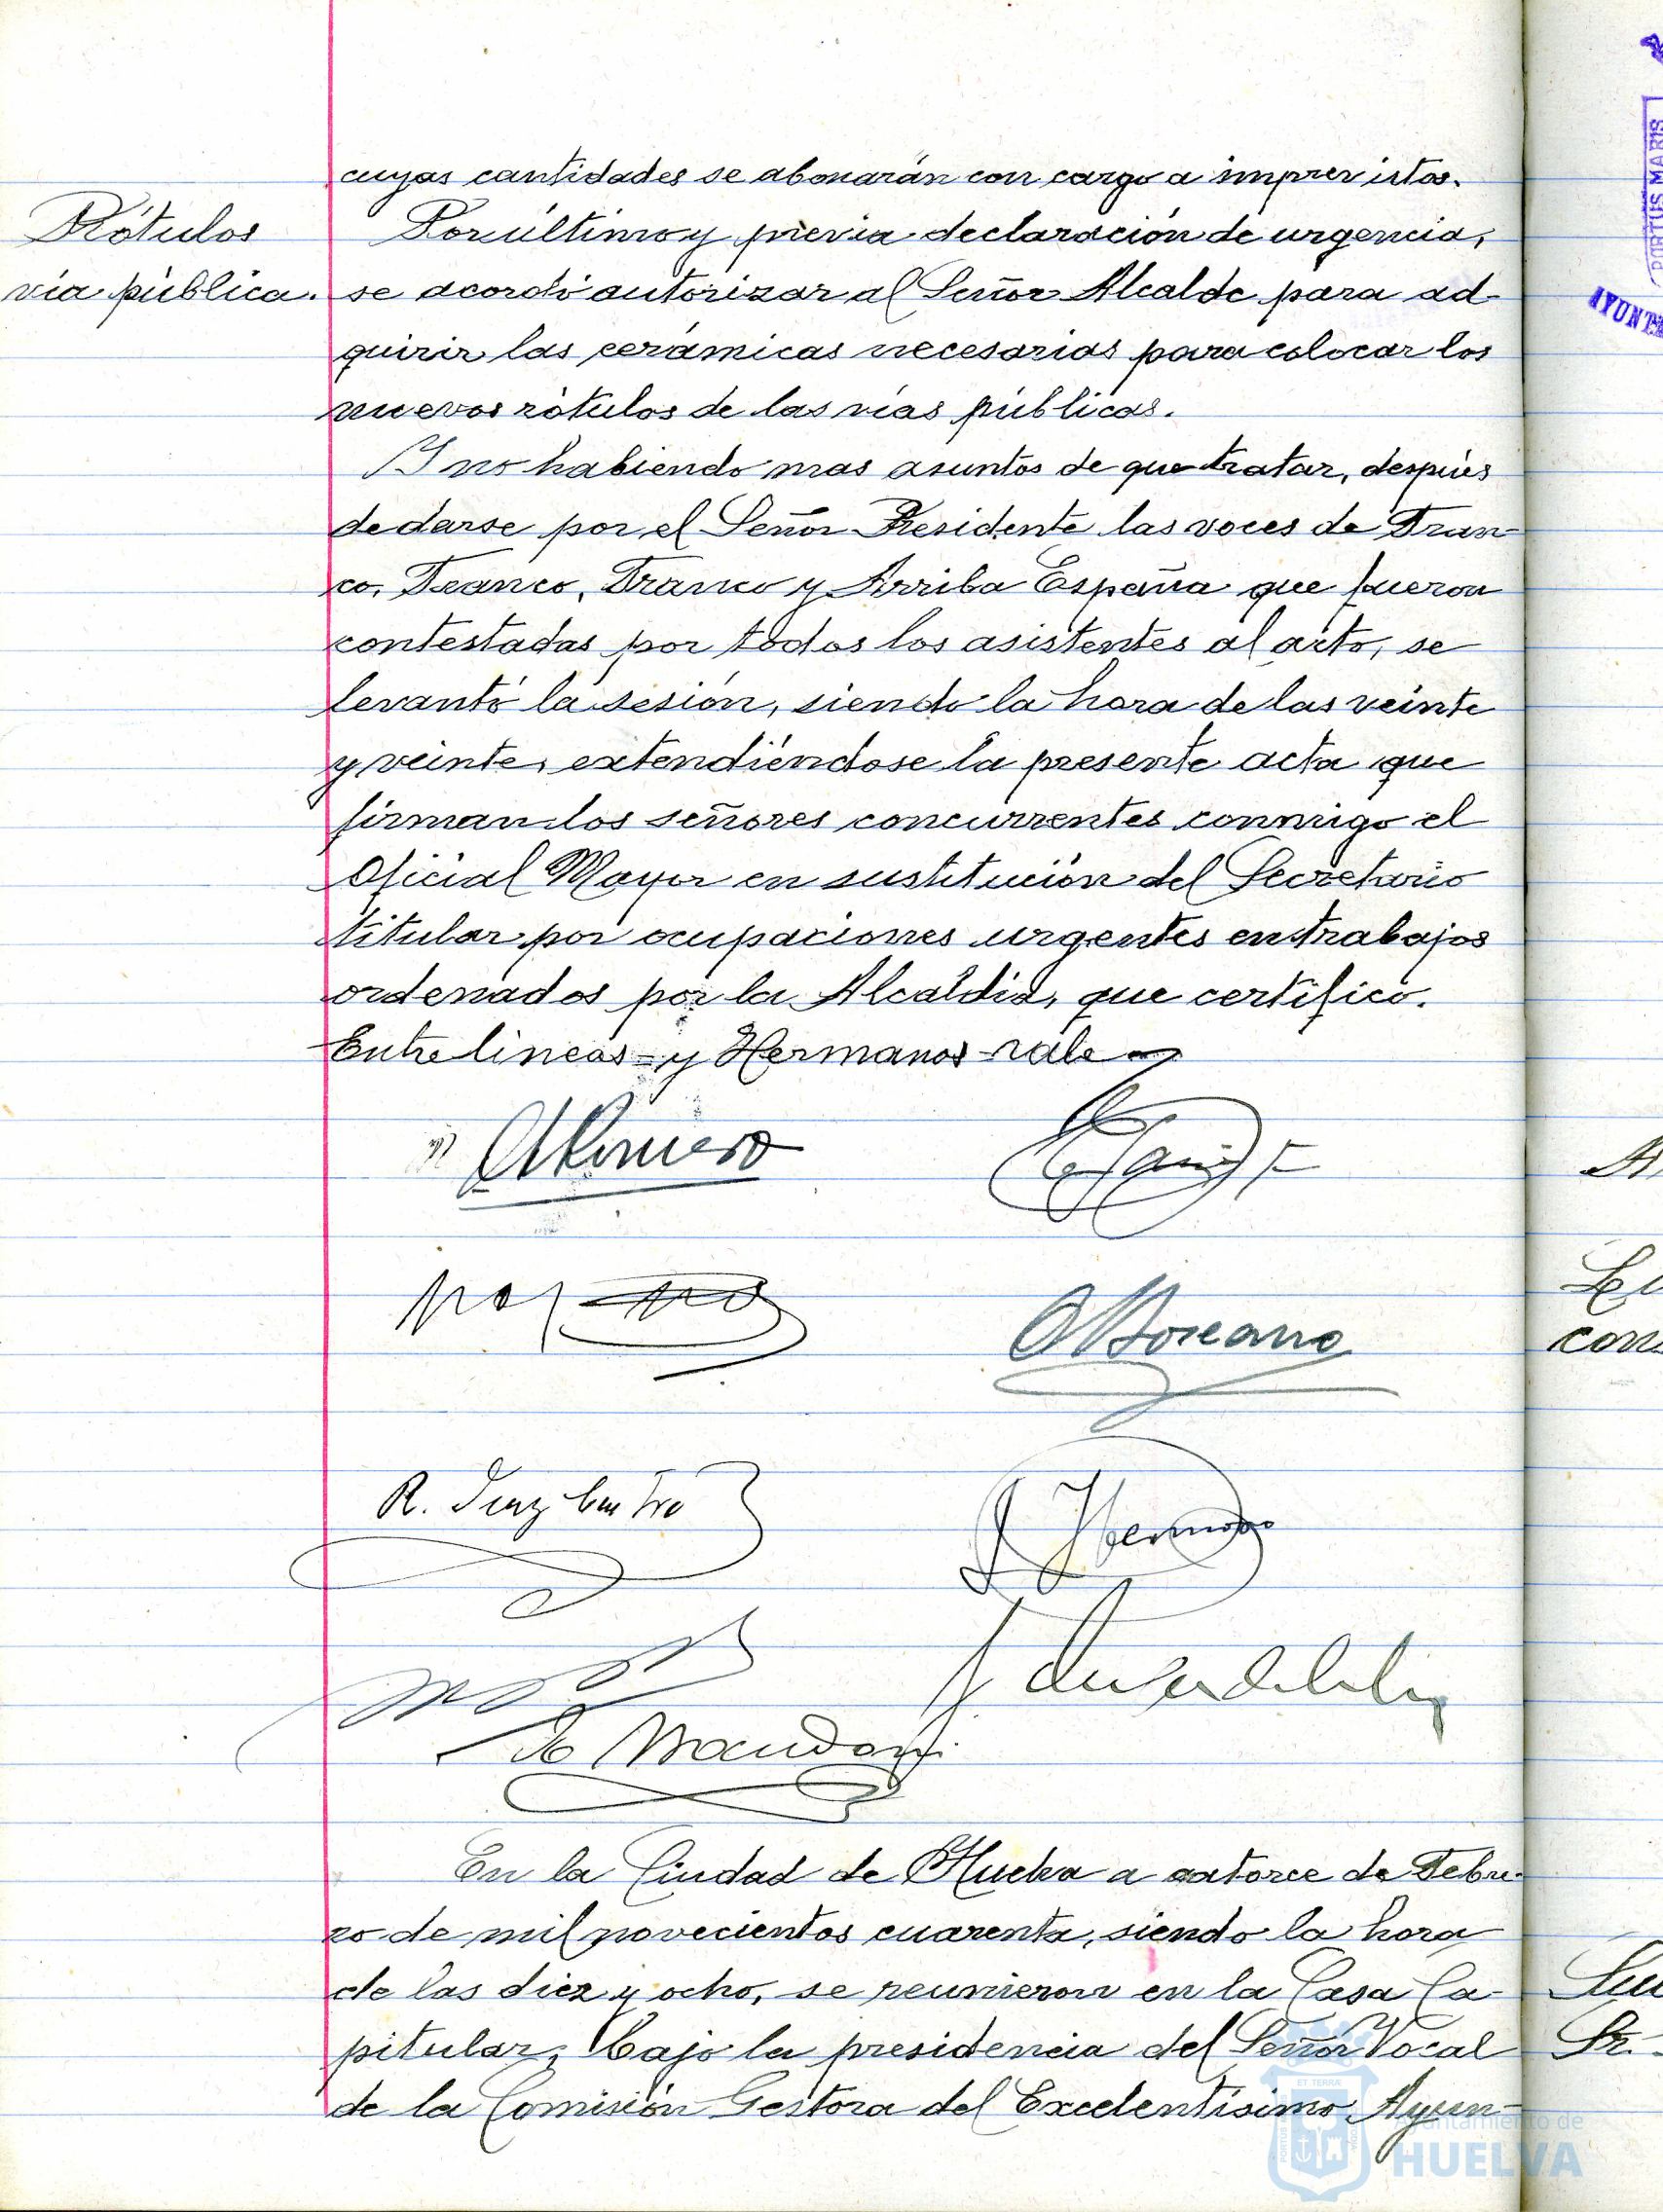 cuyas cantidades se abonarán con cargo a imprevistos.
Rótulos
vía pública.
Por último y previa declaración de urgencia,
se acordó autorizar al Señor Alcalde para ad-
quirir las cerámicas necesarias para colocar los
nuevos rótulos de las vías públicas.
Y no habiendo mas asuntos de que tratar, después
de darse por el Señor Presidente las voces de Fran-
co, Franco, Franco y Arriba España que fueron
contestadas por todos los asistentes al acto, se
levantó la sesión, siendo la hora de las veinte
y veinte, extendiéndose la presente acta que
firman los señores concurrentes conmigo el
Oficial Mayor en sustitución del Secretario
titular por ocupaciones urgentes en trabajos
ordenados por la Alcaldía, que certifico.
Entre lineas - y Hermanos - vale
Romero
R. Diaz
de
En la Ciudad de Huelva a catorce de Febre-
ro de mil novecientos cuarenta, siendo la hora
de las diez y ocho, se reunieron en la Casa Ca-
pitular, bajo la presidencia del Señor Vocal
de la Comisión Gestora del Excelentísimo Ayun-
PORTUS MARIS
AYUNT
Ayuntamiento de
HUELVA